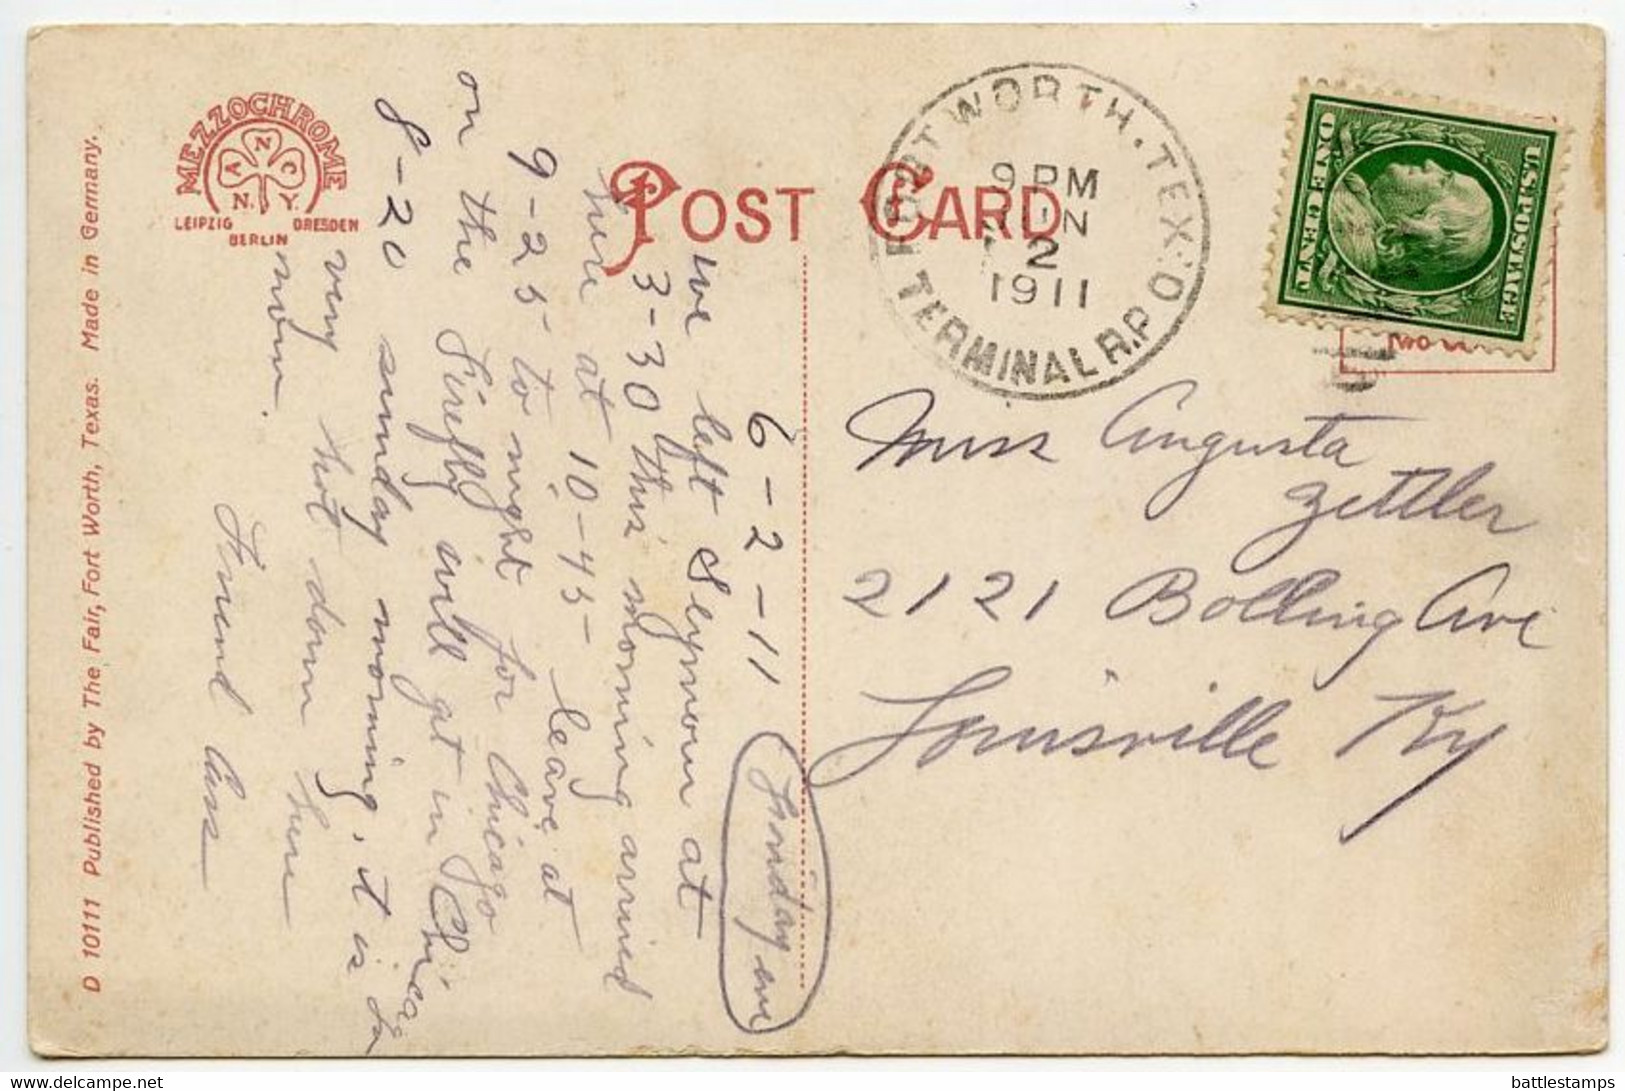 D 10111 Published by The Fair, Fort Worth, Texas. Made in Germany.
MEZZOCHROME
A N C
N. Y.
LEIPZIG DRESDEN
BERLIN
POST CARD
FORT WORTH. TEX.
9 PM
JUN
2
1911
TERMINAL R.P.O.
U.S. POSTAGE
ONE CENT
6-2-11
we left Seymour at
3-30 this morning arrived
here at 10-45- leave at
9-25 to night for Chicago
on the Firefly will get in Chicago
8-20 sunday morning, it is
very hot down here
now.
Friend Cass
Miss Augusta
Zettler
2121 Bolling Ave
Louisville Ky
battlestamps
delcampe.net